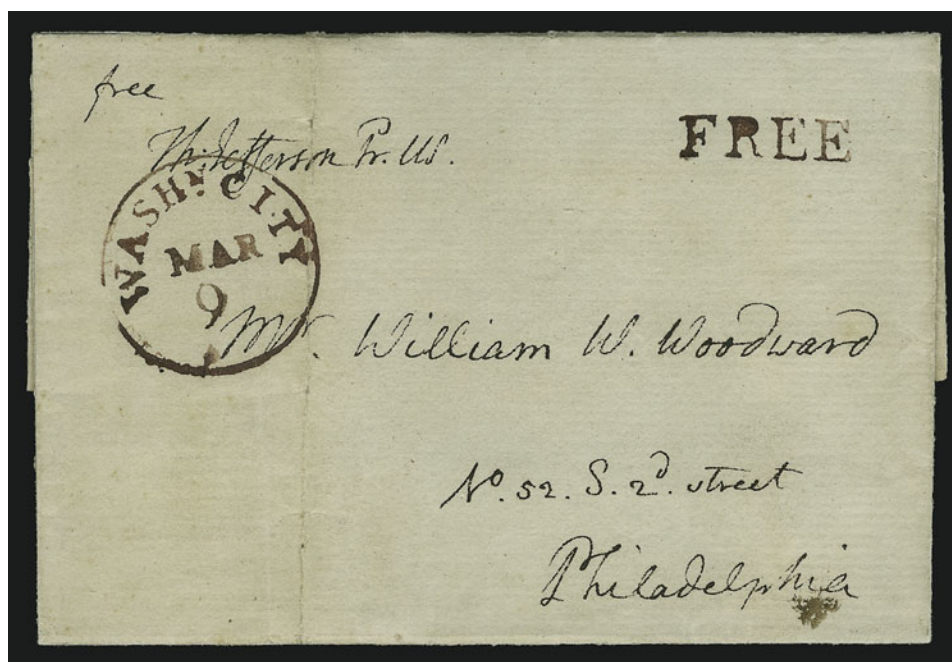 free
Th: Jefferson Pr. US.
FREE
WASHN. CITY
MAR
9
Mr. William W. Woodward
No. 52. S. 2d. street
Philadelphia